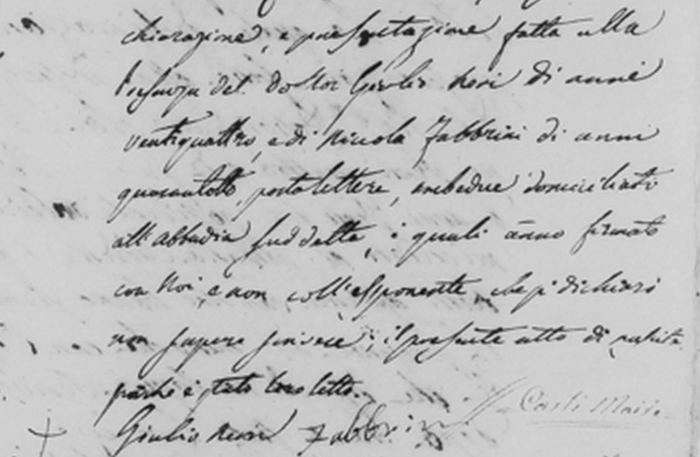 chiarazione, e presentazione fatta alla
Presenza del Dottor Giulio Neri di anni
ventiquattro, e di Niccola Fabbrini di anni
quarantotto, portalettere, ambedue domiciliati
all'abbadia suddetta, i quali anno firmato
con Noi, e non coll'esponente, che si dichiarò
non sapere scrivere; il presente atto di nascita
poiché è stato loro letto.
Giulio Neri Fabbrini Carli Maire